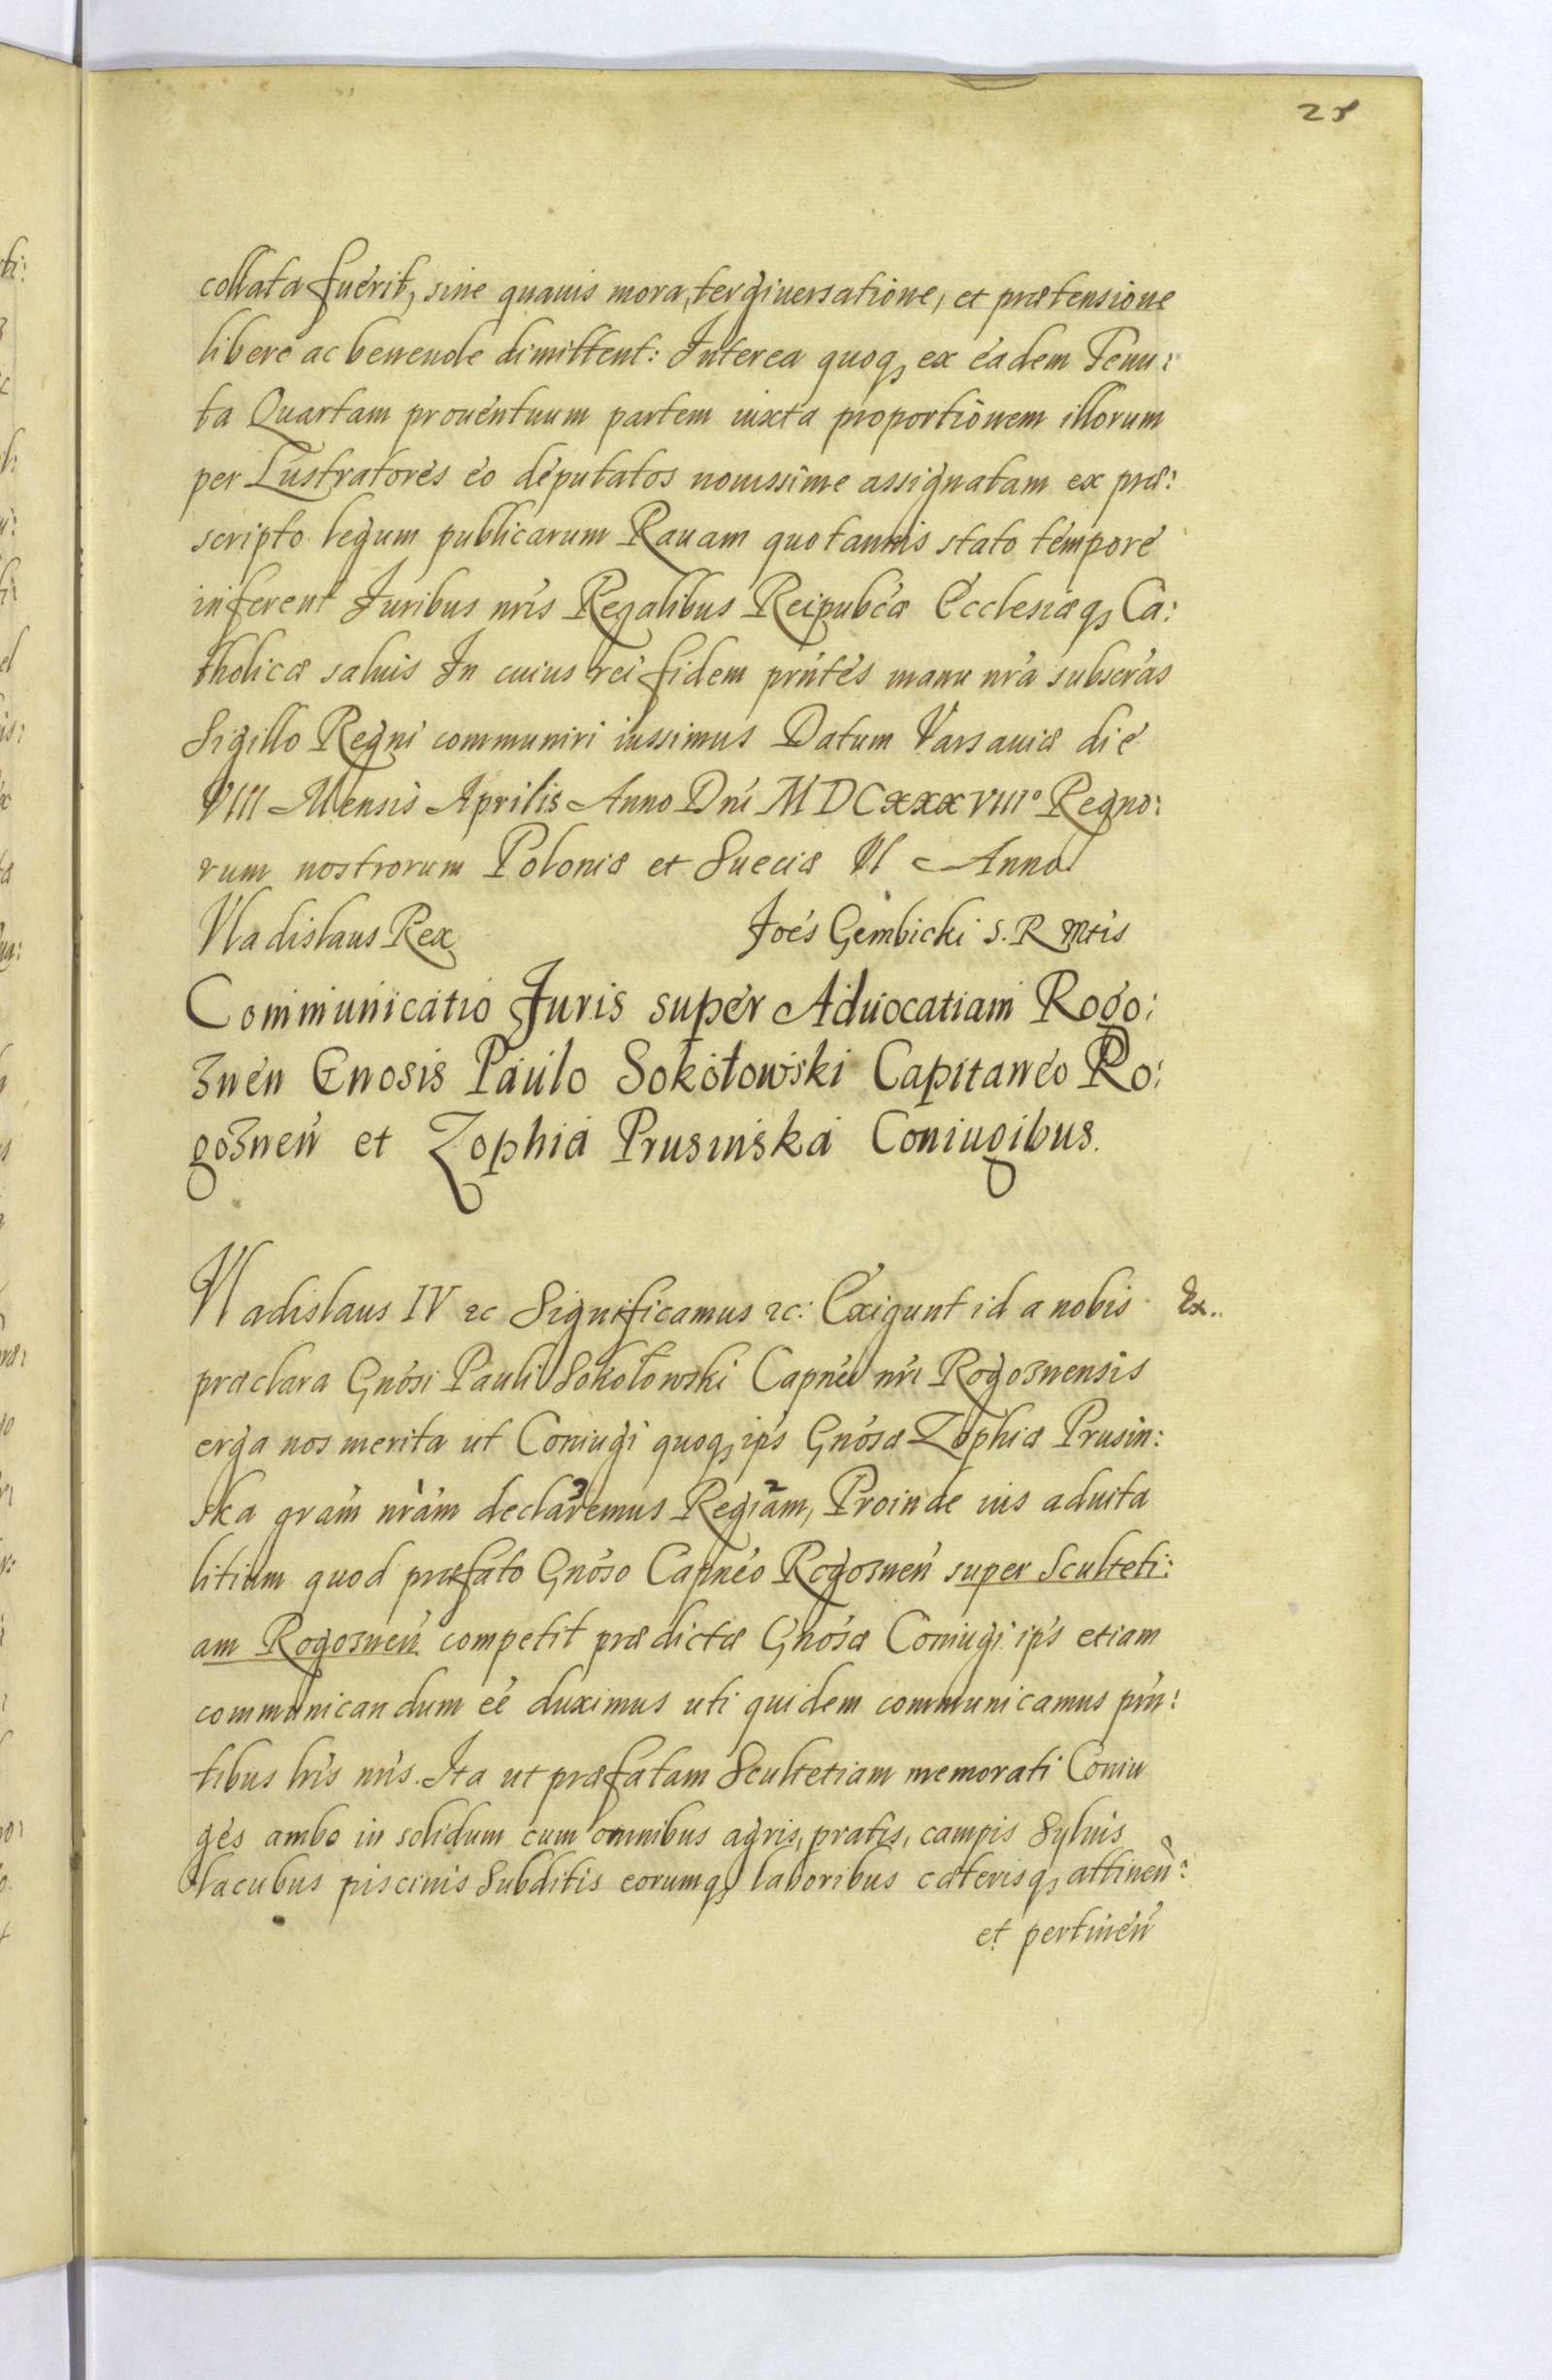 28
collata fuerit, sine quauis mora, tergiuersatione, et prætensione
libere ac beneuole dimittent: Interea quoq, ex eadem Tenu:
ta Quartam prouentuum partem iuxta proportionem illorum
per Lustratores eo deputatos nouissime assignatam ex præ:
scripto legum publicarum Rauam quotannis stato tempore
inferent Juribus nris Regalibus Reipubcæ Ecclesiæq, Ca:
tholicæ saluis In cuius rei fidem prntes manu nra subscras
Sigillo Regni communiri iussimus Datum Varsauiæ die
VIII Mensis Aprilis Anno Dni MDCXXXVIIIº Regno:
rum nostrorum Poloniæ et Sueciæ VI Anno
Vladislaus Rex Joes Gembicki S. R Mtis
Communicatio Juris super Aduocatiam Rogo:
znen Gnosis Paulo Sokołowski Capitaneo Ro:
goznen et Zophia Prusinska Coniugibus.
Vladislaus IV etc Significamus etc: Exigunt id a nobis
Ex..
præclara Gnosi Pauli Sokołowski Capnei nri Rogoznensis
erga nos merita ut Coniugi quoq, ips Gnosæ Zophiæ Prusin:
ska gram nram declaremus Regiam, Proinde ius aduita
litium quod præfato Gnoso Capneo Rogoznen super Sculteti:
am Rogoznen competit prædictæ Gnosæ Coniugi ips etiam
communicandum ee duximus uti quidem communicamus prn:
tibus lris nris. Ita ut præfatam Scultetiam memorati Coniu
ges ambo in solidum cum omnibus agris, pratis, campis Syluis
lacubus piscinis Subditis eorumq, laboribus cæterisq, attinen:
et pertinen